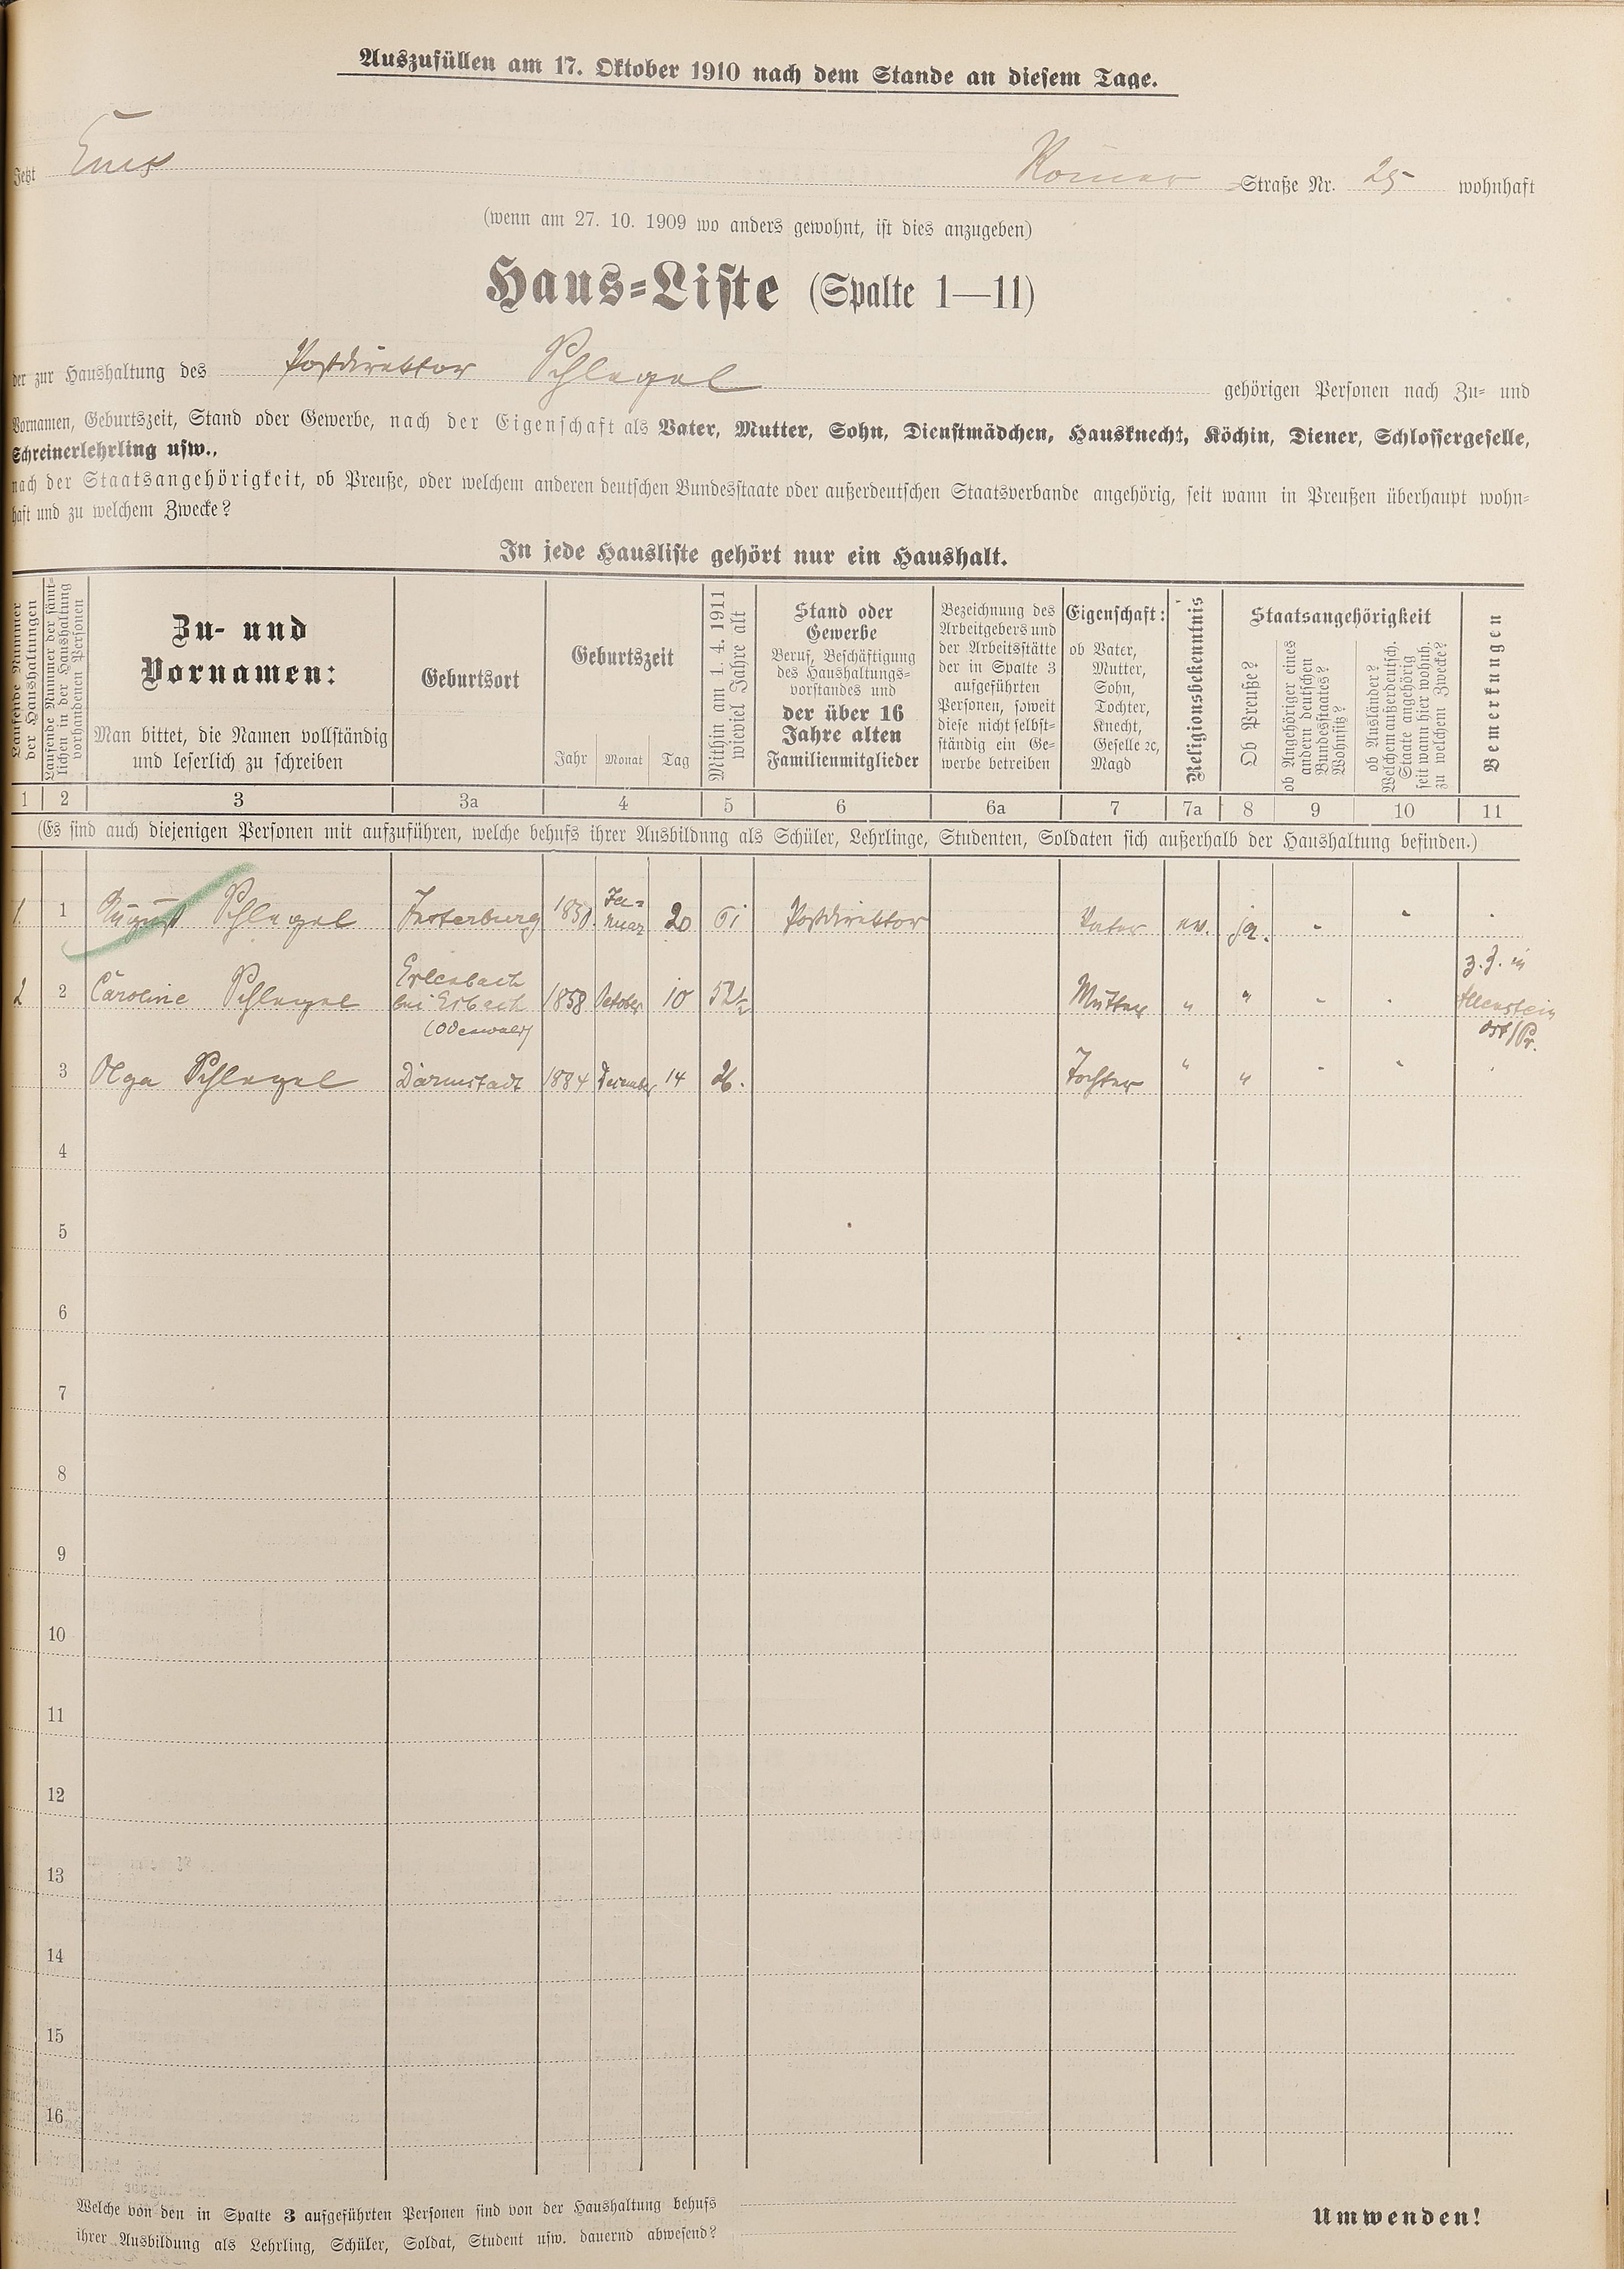 Auszufüllen am 17. Oktober 1910 nach dem Stande an diesem Tage.
Jetzt Ems Römer Straße Nr. 25 wohnhaft
(wenn am 27. 10. 1909 wo anders gewohnt, ist dies anzugeben)
Haus-Liste (Spalte 1—11)
der zur Haushaltung des Postdirektor Schlegel gehörigen Personen nach Zu- und
Vornamen, Geburtszeit, Stand oder Gewerbe, nach der Eigenschaft als Vater, Mutter, Sohn, Dienstmädchen, Hausknecht, Köchin, Diener, Schlossergeselle,
Schreinerlehrling usw.,
nach der Staatsangehörigkeit, ob Preuße, oder welchem anderen deutschen Bundesstaate oder außerdeutschen Staatsverbande angehörig, seit wann in Preußen überhaupt wohn-
haft und zu welchem Zwecke?
In jede Hausliste gehört nur ein Haushalt.
Laufende Nummer
der Haushaltungen
Laufende Nummer der sämt-
lichen in der Haushaltung
vorhandenen Personen
Zu- und
Vornamen:
Man bittet, die Namen vollständig
und leserlich zu schreiben
Geburtsort
Geburtszeit
Jahr Monat Tag
Mithin am 1. 4. 1911
wieviel Jahre alt
Stand oder
Gewerbe
Beruf, Beschäftigung
des Haushaltungs-
vorstandes und
der über 16
Jahre alten
Familienmitglieder
Bezeichnung des
Arbeitgebers und
der Arbeitsstätte
der in Spalte 3
aufgeführten
Personen, soweit
diese nicht selbst-
ständig ein Ge-
werbe betreiben
Eigenschaft:
ob Vater,
Mutter,
Sohn,
Tochter,
Knecht,
Geselle ꝛc,
Magd
Religionsbekenntnis
Staatsangehörigkeit
Ob Preuße?
ob Angehöriger eines
andern deutschen
Bundesstaates?
Wohnsitz?
ob Ausländer?
Welchem außerdeutsch.
Staate angehörig
seit wann hier wohnh.
zu welchem Zwecke?
Bemerkungen
1 2 3 3a 4 5 6 6a 7 7a 8 9 10 11
(Es sind auch diejenigen Personen mit aufzuführen, welche behufs ihrer Ausbildung als Schüler, Lehrlinge, Studenten, Soldaten sich außerhalb der Haushaltung befinden.)
1. 1 August Schlegel Insterburg Ja-
nuar 20 61 Postdirektor Vater ev. ja. - -
2 2 Caroline Schlegel Erlenbach
bei Erbach
(Odenwald) 1858 October 10 52½ Mutter " " - - z. Z. in
Allenstein
Ost/Pr.
3 Olga Schlegel Darmstadt 1884 December 14 26. Tochter " " - -
4
5
6
7
8
9
10
11
12
13
14
15
16
Welche von den in Spalte 3 aufgeführten Personen sind von der Haushaltung behufs
ihrer Ausbildung als Lehrling, Schüler, Soldat, Student usw. dauernd abwesend?
Umwenden!